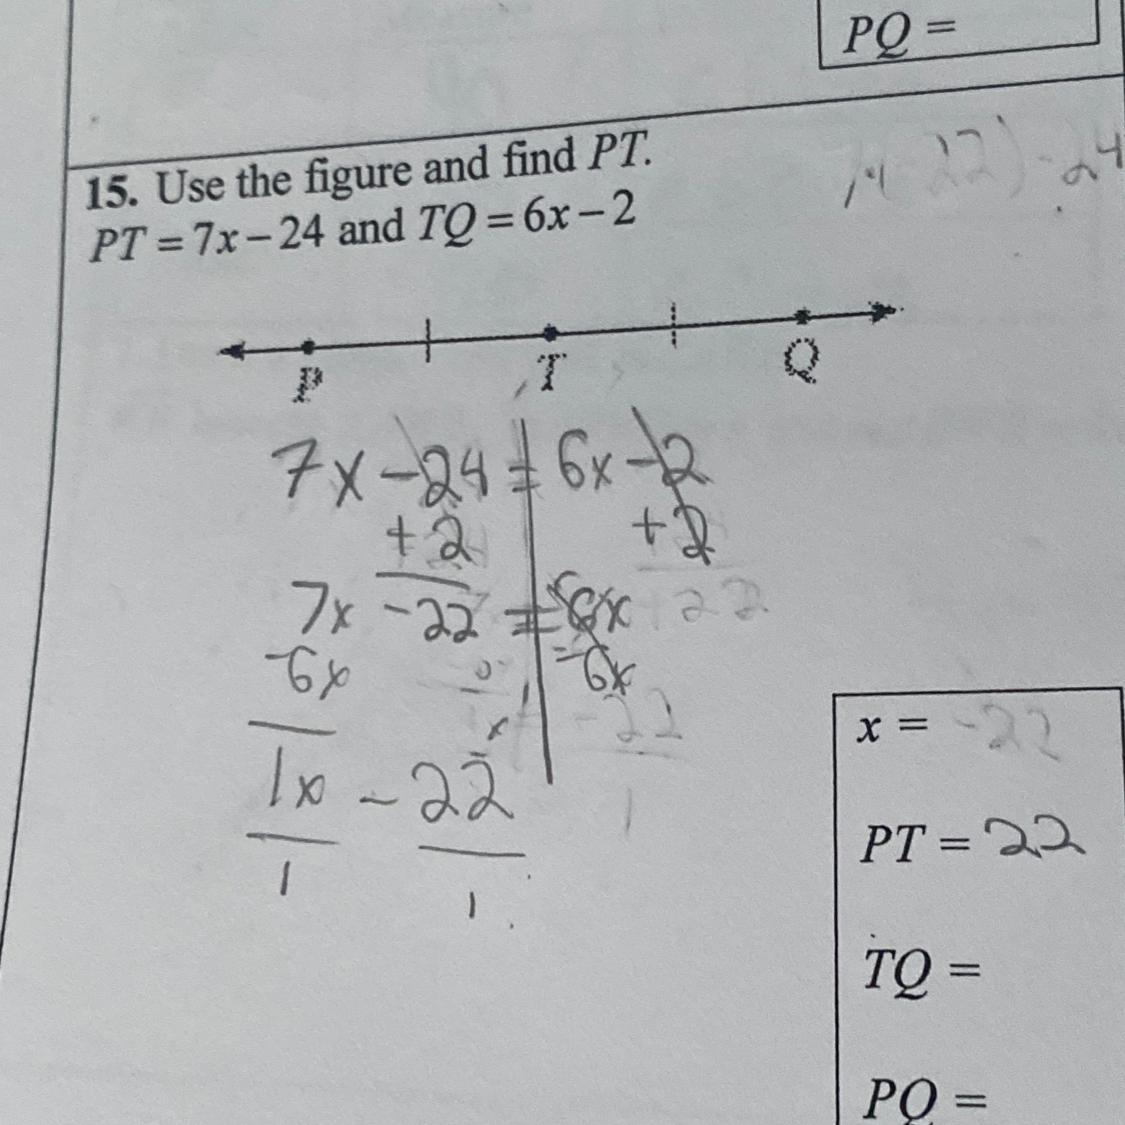 PQ =
15. Use the figure and find PT.
PT = 7x – 24 and TQ = 6x – 2
(22) - 24
P T Q
7x - 24 = 6x - 2
+ 2 + 2
7x - 22 = 6x 22
-6x -6x
-22
x
1x - 22
1 1 1
x = -22
PT = 22
TQ =
PQ =